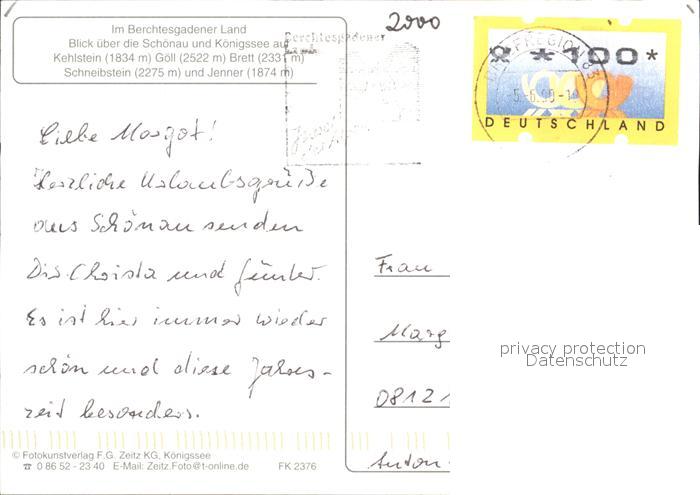 Im Berchtesgadener Land
Blick über die Schönau und Königssee auf
Kehlstein (1834 m) Göll (2522 m) Brett (2331 m)
Schneibstein (2275 m) und Jenner (1874 m)
2000
Berchtesgadener
*100*
DEUTSCHLAND
Liebe Margot!
Herzliche Urlaubsgrüße
aus Schönau senden
Dir Christa und Günter.
Es ist hier immer wieder
schön und diese Jahres-
zeit besonders.
Frau
Marg
08121
Anton
privacy protection
Datenschutz
© Fotokunstverlag F.G. Zeitz KG, Königssee
☎ 0 86 52 - 23 40 E-Mail: Zeitz.Foto@t-online.de FK 2376